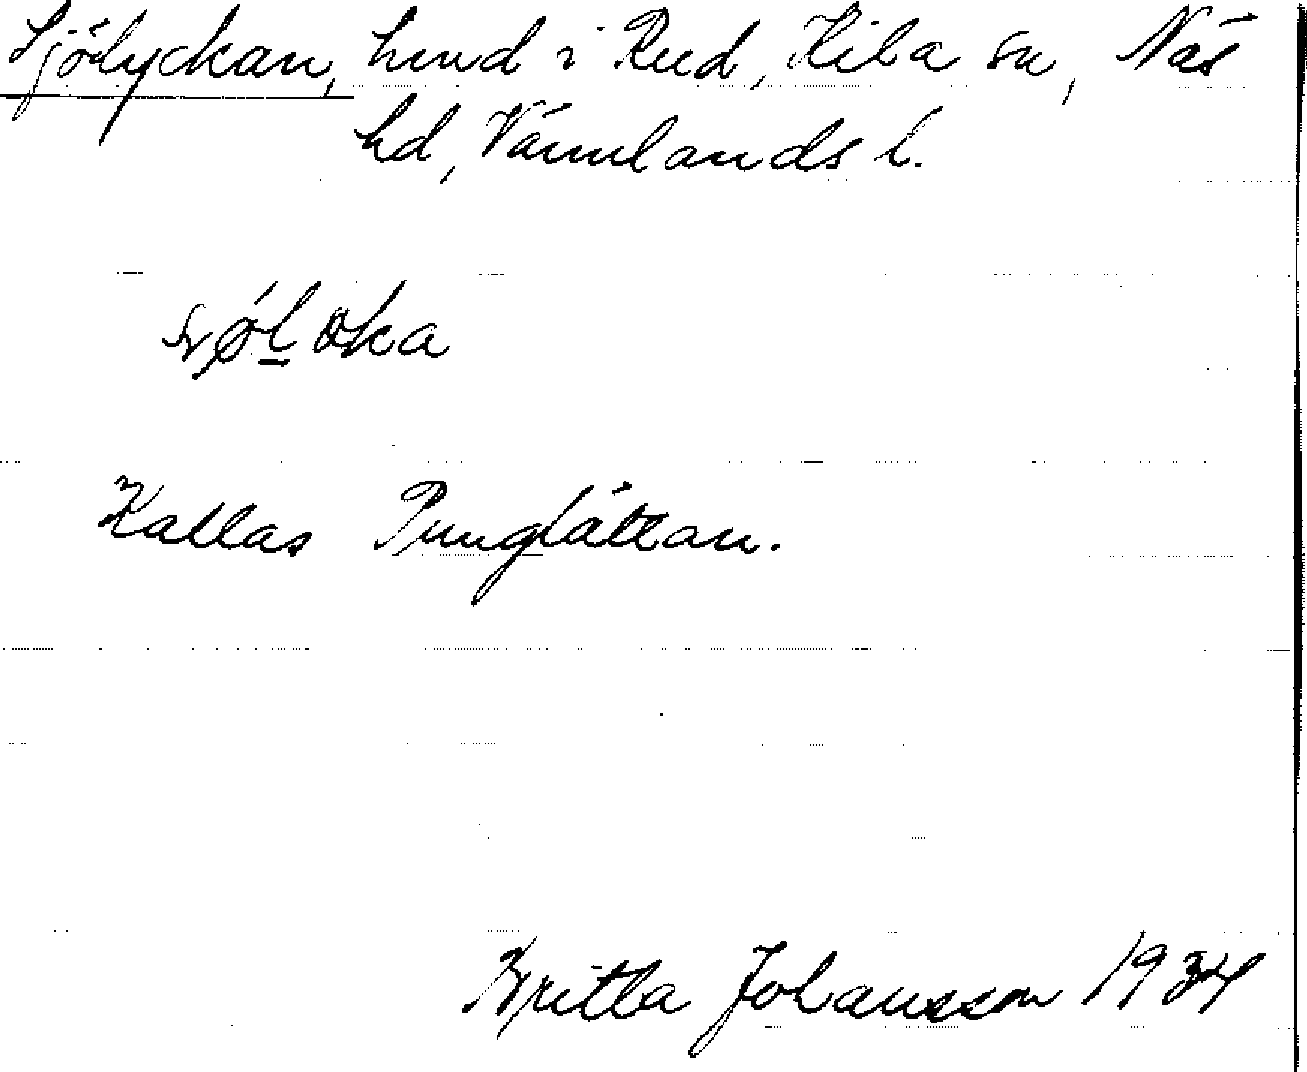 Sjölyckan, hmd i Rud, Kila sn, Näs
hd, Värmlands l.
Kallas Punglåttan.
Britta Johansson 1934